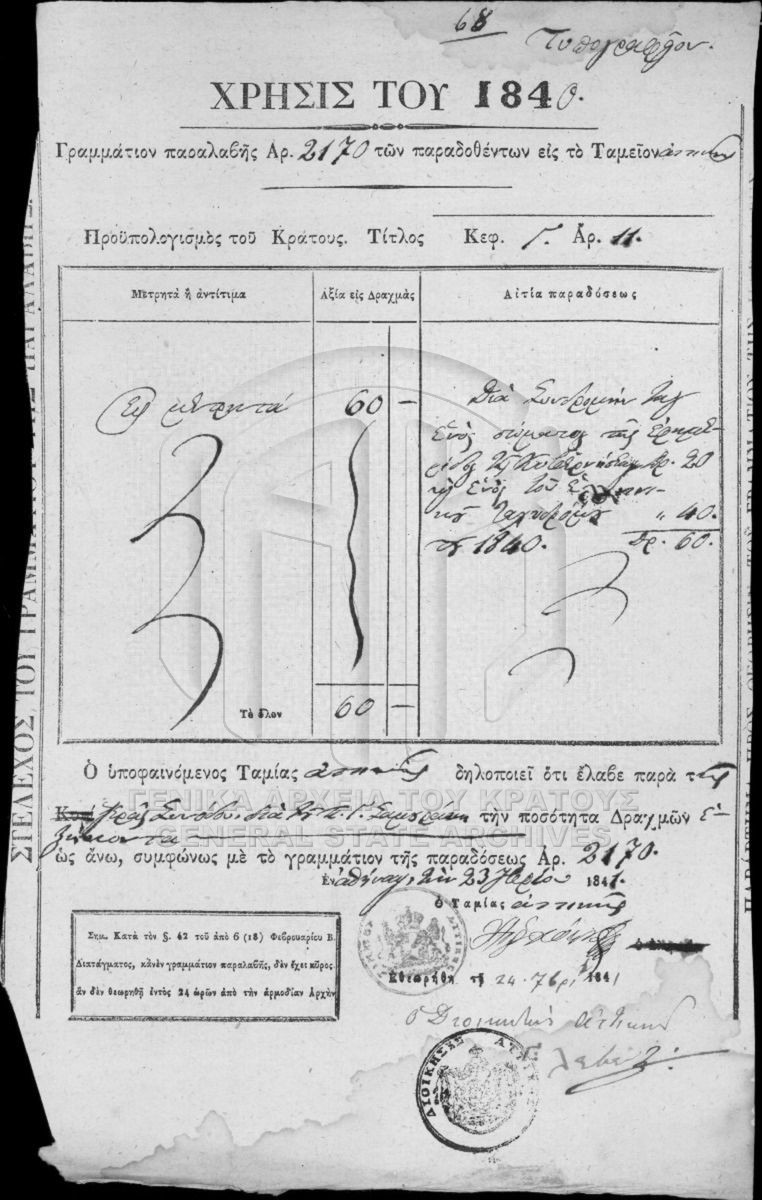 68
Τυπογραφεῖον.
ΧΡΗΣΙΣ ΤΟΥ 1840.
Γραμμάτιον παραλαβῆς Αρ. 2170 τῶν παραδοθέντων εἰς τὸ Ταμεῖον ἀττικῆς
Προϋπολογισμὸς τοῦ Κράτους. Τίτλος Κεφ. Γ. Ἀρ. 11.
Μετρητὰ ἢ ἀντίτιμα Ἀξία εἰς Δραχμὰς Αἰτία παραδόσεως
Εἰς μετρητά 60 —
Διὰ Συνδρομήν
ἑνὸς σώματος τῆς ἐφημε-
ρίδος τῆς Κυβερνήσεως δρ. 20
ἑνὸς τοῦ Ἑλληνι-
κοῦ Ταχυδρόμου " 40.
τοῦ 1840. Δρ. 60.
Τὸ ὅλον 60 —
Ὁ ὑποφαινόμενος Ταμίας ἀττικῆς δηλοποιεῖ ὅτι ἔλαβε παρὰ τῆς
διὰ τὴν ποσότητα Δραχμῶν ἑ-
ξήκοντα
ὡς ἄνω, συμφώνως μὲ τὸ γραμμάτιον τῆς παραδόσεως Ἀρ. 2170.
Ἐν Ἀθήναις τὴν 23 7βρίου 1841.
ὁ Ταμίας ἀττικῆς
Σημ. Κατὰ τὸν §. 42 τοῦ ἀπὸ 6 (18) Φεβρουαρίου Β.
Διατάγματος, κανὲν γραμμάτιον παραλαβῆς, δὲν ἔχει κῦρος
ἂν δὲν θεωρηθῇ ἐντὸς 24 ὡρῶν ἀπὸ τὴν ἁρμοδίαν Ἀρχὴν
Ἐθεωρήθη τῇ 24 7βρί 1841
ὁ Διοικητὴς Ἀττικῆς
ΔΙΟΙΚΗΣΙΣ ΑΤΤΙΚΗΣ
ΣΤΕΛΕΧΟΣ ΤΟΥ ΓΡΑΜΜΑΤΙΟΥ ΤΗΣ ΠΑΡΑΛΑΒΗΣ
ΓΕΝΙΚΑ ΑΡΧΕΙΑ ΤΟΥ ΚΡΑΤΟΥΣ
GENERAL STATE ARCHIVES